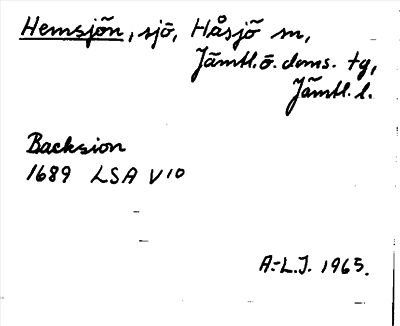 Hemsjön, sjö, Håsjö sn,
Jämtl. ö. doms. tg,
Jämtl. l.
Backsion
1689 LSA V10
A.-L.J. 1965.